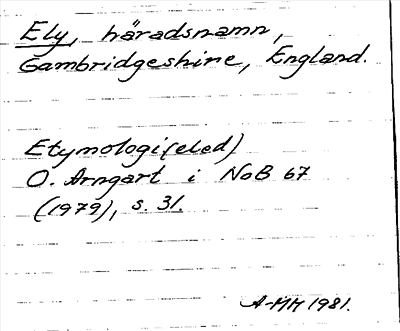 Ely, häradsnamn,
Cambridgeshire, England.
Etymologi (eled)
O. Arngart i NoB 67
(1979), s. 31.
A-MM 1981.